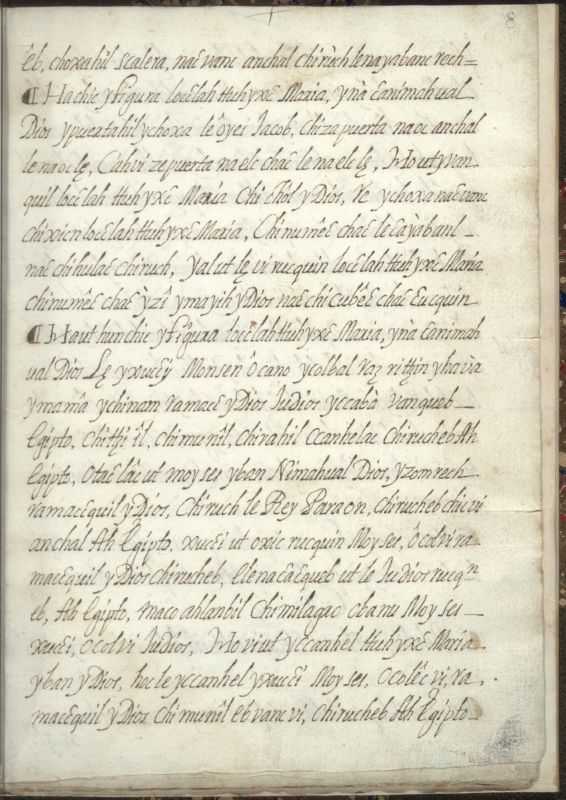 8
eb, choxahil scalera, naɛvanc anchal chiruch lenayabanc rech=
¶ Hachic yfigura locɛlah Huhyxɛ Maria, yna ɛanimahual
Dios ypuertahil ychoxa le oyei Jacob, Chiza puerta naoc anchal
lenaoc lę, Cahvi ze puerta na elc chaɛ le na elc lę, Mo ut yvan
quil locɛlah Huhyxɛ Maria Chi chol y Dios, re ychoxa naɛvanc
chixicn locɛlah Huhyxɛ Maria, Chinumeɛ chaɛ le ɛayabanl_
naɛ chihulac chiruch, yal ut lę vi rucquin locɛlah Huhyxɛ Maria
chinumeɛ chaɛ yzi ymayih y Dios naɛ chi cubeɛ chaɛ ɛucquin
¶ Haut hunchic yfigura locɛlah Huhyxɛ Maria, yna ɛanimah
ual Dios Lę yxuɛɛij Monsen ocano ycolbal raz rithin yhava
ymama ychinam ramaɛɛ y Dios Judios yccaba vanqueb_
Egipto, chithi il, chimunil, chirahil ccanhelac Chirucheb Ah
Egipto, otaɛlac ut moyses yban Nimahual Dios, yzomrech
ramaɛɛquil y Dios, Chiruch le Rey Paraon, chirucheb chicvi
anchal Ah Egipto, xuɛɛi ut oxic rucquin Moyses, ocolvi ra
maɛɛquil y Dios chirucheb, elenaɛaɛqueb ut le Judios rucqn
eb, Ah Egipto, maco ahlanbil chi milagro cbanu Moyses_
xuɛɛi, ocolvi Judios, Mo vi ut yccanhel Huhyxɛ Maria
yban y Dios, hoc le yccanhel yxuɛɛi Moyses, ocoleɛ vi, ra.
maɛɛquil y Dios chimunil eb vanc vi, chirucheb Ah Egipto_